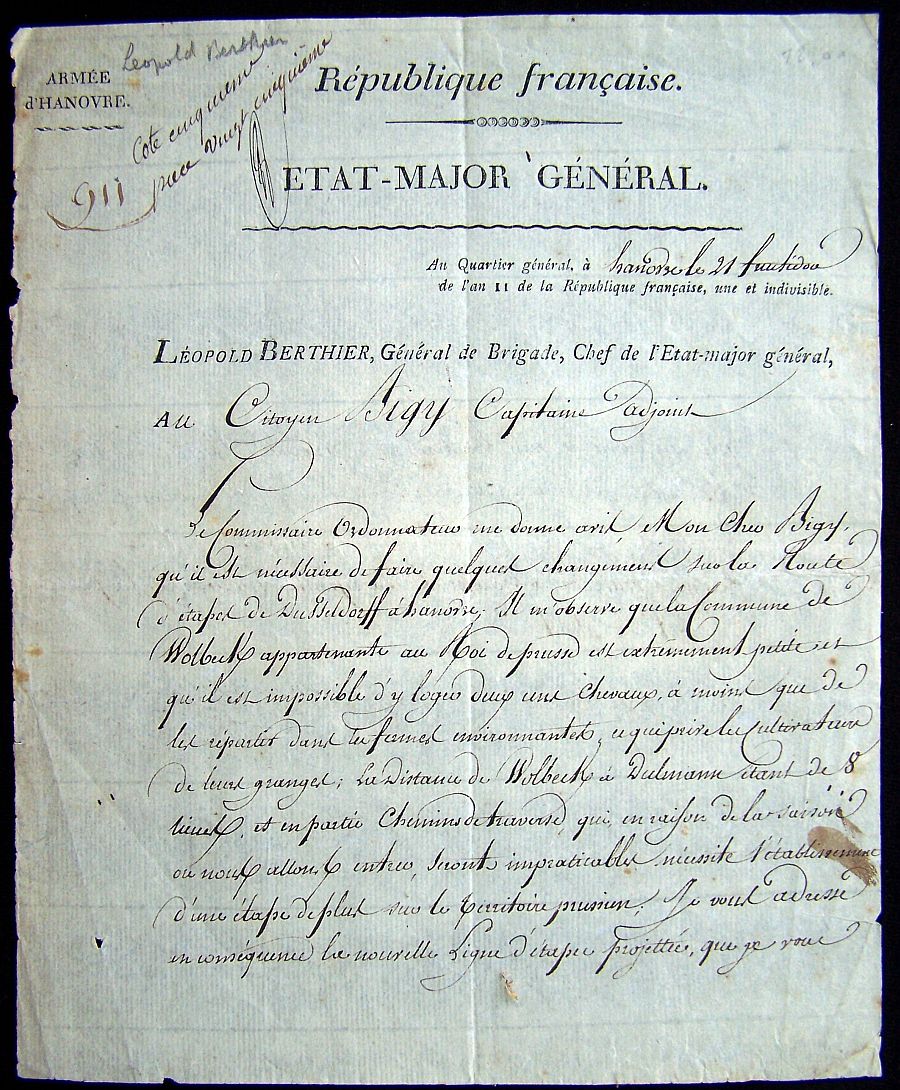 Léopold Berthier
ARMÉE
d'HANOVRE.
Cote cinquieme
piece vingt cinquième
911
République française.
ETAT-MAJOR GÉNÉRAL.
Au Quartier général, à hanovre le 21 fructidor
de l'an 11 de la République française, une et indivisible.
LÉOPOLD BERTHIER, Général de Brigade, Chef de l'Etat-major général,
Au Citoyen Bigy Capitaine adjoint
Le Commissaire Ordonnateur me donne avis, Mon Cher Bigy,
qu'il est nécessaire de faire quelques changemens sur la Route
d'étapes de Dusseldorff à hanovre; Il m'observe que la Commune de
Wolbeck appartenante au Roi de prusse est extrêmement petite et
qu'il est impossible d'y loger deux cens Chevaux, à moins que de
les répartir dans les fermes environnantes, ce qui prive les Cultivateurs
de leurs granges; La Distance de Wolbeck à Dulmann étant de 8
lieues, et en partie Chemins de traverse, qui, en raison de la saison
ou nous allons entrer, seront impraticables nécessite l'établissement
d'une étape de plus sur le territoire prussien. Je vous adresse
en conséquence la nouvelle Ligne d'étapes projettée, que je vous